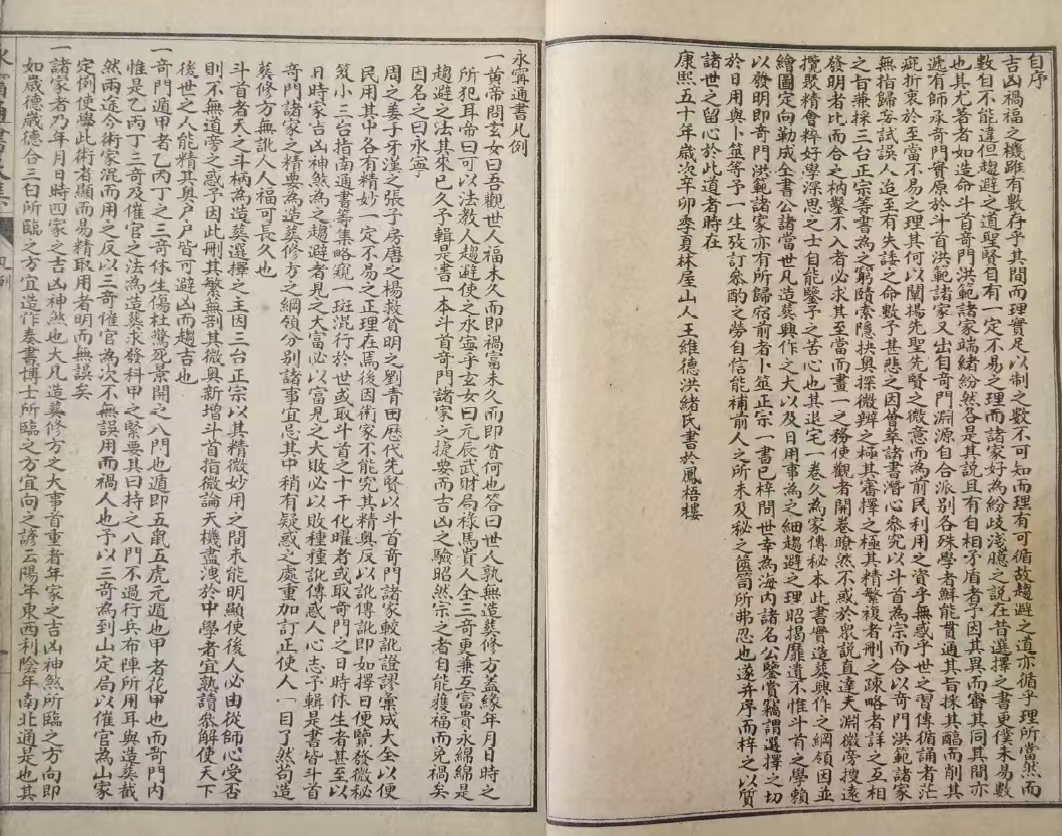 自序
吉凶禍福之機雖有數存乎其間而理實足以制之數不可知而理有可循故趨避之道亦循乎理所當然而
數自不能違但趨避之道聖賢自有一定不易之理而諸家好為紛歧淺臆之說在昔選擇之書更僕未易數
也其尤著者如造命斗首奇門洪範諸家端緒紛然各是其說且有自相矛盾者予因其異而審其同其間亦
遞有師承奇門實原於斗首洪範諸家又出自奇門淵源自合派別各殊學者鮮能貫通其旨採其醇而削其
疵折衷於至當不易之理其何以闡揚先聖先賢之微意而為前民利用之資乎無惑乎世之習傳循誦者茫
無指歸妄試誤人迨至有失諉之命數予甚悲之因薈萃諸書潛心參究以斗首為宗而合以奇門洪範諸家
之旨兼採三台正宗等書為之窮賾索隱抉奥探微辨之極其審擇之極其精繁複者刪之疎略者詳之互相
發明者比而合之枘鑿不入者必求其至當而畫一之務使觀者開卷瞭然不或於衆說直達夫淵微旁搜遠
攬聚精會粹好學深思之士自能鑒予之苦心也其退宅一卷久為家傳秘本此書實造葬興作之綱領因並
繪圖定向勒成全書公諸當世凡造葬興作之大以及日用事為之細趨避之理昭揭靡遺不惟斗首之學賴
以發明即奇門洪範諸家亦有所歸宿前者卜筮正宗一書已梓問世幸為海内諸名公鑒賞竊謂選擇之切
於日用與卜筮等予一生攷訂參酌之勞自信能補前人之所未及秘之篋笥所弗忍也遂并序而梓之以質
諸世之留心於此道者時在
康熙五十年歲次辛卯季夏林屋山人王維德洪緒氏書於鳳梧樓
永甯通書凡例
一黃帝問玄女曰吾觀世人福未久而即禍富未久而即貧何也答曰世人孰無造葬修方蓋緣年月日時之
所犯耳帝曰可以法教人趨避使之永寧乎玄女曰元辰武財局祿馬貴人全三奇更兼互富貴永綿綿是
趨避之法其來已久予輯是書一本斗首奇門諸家之捷要而吉凶之驗昭然宗之者自能獲福而免禍矣
因名之曰永寧
周之姜子牙漢之張子房唐之楊救貧明之劉青田歷代先賢以斗首奇門諸家較訛證謬彙成大全以便
民用其中各有精妙一定不易之正理在焉後因術家不能究其精奥反以訛傳訛即如擇日便覽發微秘
笈小三台指南通書等集略窺一斑混行於世或取斗首之十干化曜者或取奇門之日時休生者甚至以
日時家吉凶神煞為之趨避者見之大富必以富見之大敗必以敗種種訛傳惑人心志予輯是書皆斗首
奇門諸家之精要為造葬修方之綱領分別諸事宜忌其中稍有疑惑之處重加訂正使人一目了然苟造
葬修方無訛人人福可長久也
斗首者天之斗柄為造葬選擇之主因三台正宗以其精微妙用之間未能明顯使後人必由從師心受否
則不無道旁之惑予因此刪其繁無剖其微奥新增斗首指微論天機盡洩於中學者宜熟讀參解使天下
後世之人能精其奥户户皆可避凶而趨吉也
一奇門遁甲者乙丙丁之三奇休生傷杜驚死景開之八門也遁即五鼠五虎元遁也甲者花甲也而奇門内
惟是乙丙丁三奇及催官之法為造葬求發科甲之緊要其曰持之八門不過行兵布陣所用耳與造葬截
然兩途今術家混而用之反以三奇催官為次不無誤用而禍人也予以三奇為到山定局以催官為山家
定例使學此術者顯而易精取用者明而無誤矣
一諸家者乃年月日時四家之吉凶神煞也大凡造葬修方之大事首重者年家之吉凶神煞所臨之方向即
如歲德歲德合三白所臨之方宜造作奏書博士所臨之方宜向之諺云陽年東西利陰年南北通是也其
凡例